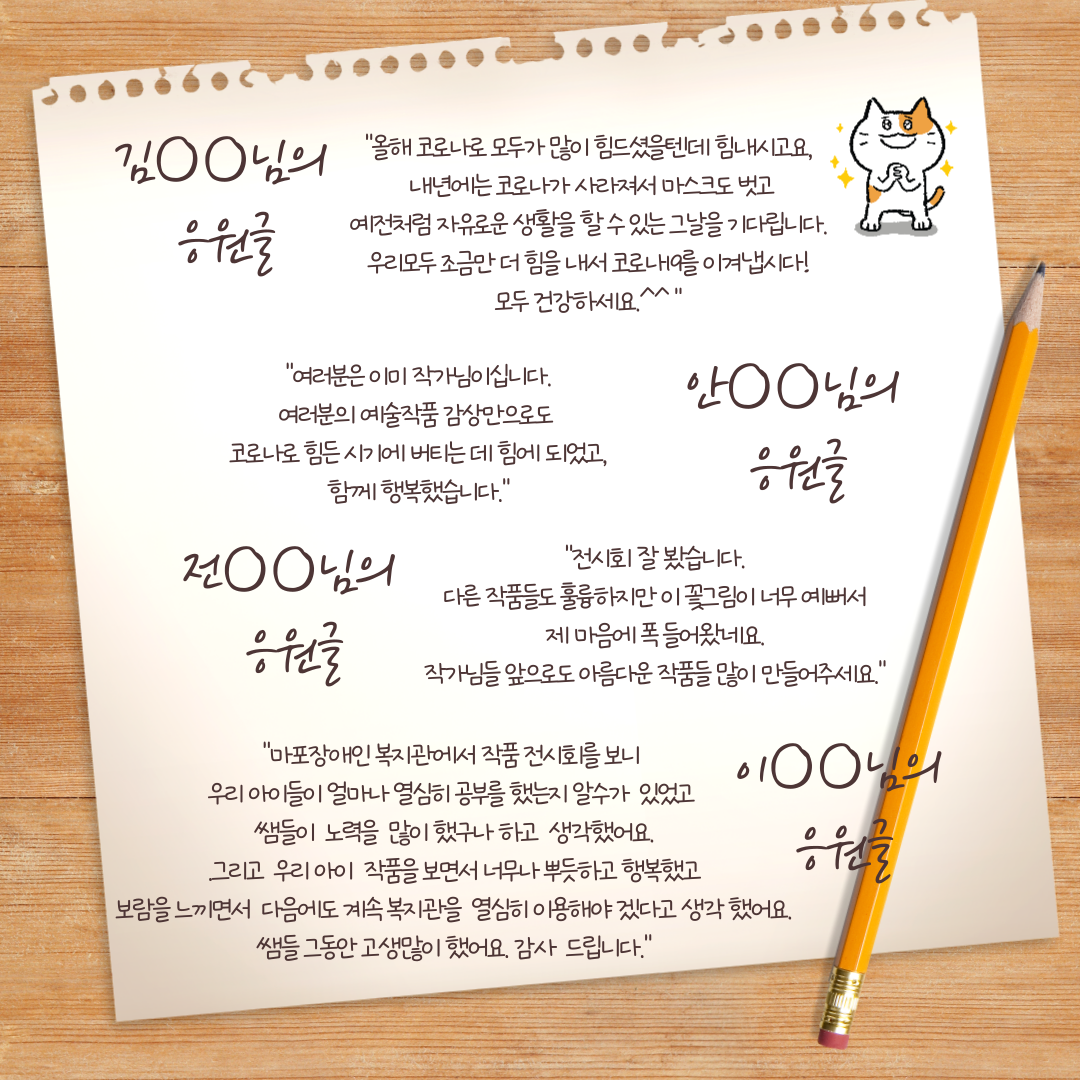 김○○님의
응원글
"올해 코로나로 모두가 많이 힘드셨을텐데 힘내시고요,
내년에는 코로나가 사라져서 마스크도 벗고
예전처럼 자유로운 생활을 할 수 있는 그날을 기다립니다.
우리모두 조금만 더 힘을 내서 코로나19를 이겨냅시다!
모두 건강하세요.^^ "
"여러분은 이미 작가님이십니다.
여러분의 예술작품 감상만으로도
코로나로 힘든 시기에 버티는 데 힘에 되었고,
함께 행복했습니다."
안○○님의
응원글
전○○님의
응원글
"전시회 잘 봤습니다.
다른 작품들도 훌륭하지만 이 꽃그림이 너무 예뻐서
제 마음에 폭 들어왔네요.
작가님들 앞으로도 아름다운 작품들 많이 만들어주세요."
"마포장애인 복지관에서 작품 전시회를 보니
우리 아이들이 얼마나 열심히 공부를 했는지 알수가 있었고
쌤들이 노력을 많이 했구나 하고 생각했어요.
그리고 우리 아이 작품을 보면서 너무나 뿌듯하고 행복했고
보람을 느끼면서 다음에도 계속 복지관을 열심히 이용해야 겠다고 생각 했어요.
쌤들 그동안 고생많이 했어요. 감사 드립니다."
이○○님의
응원글